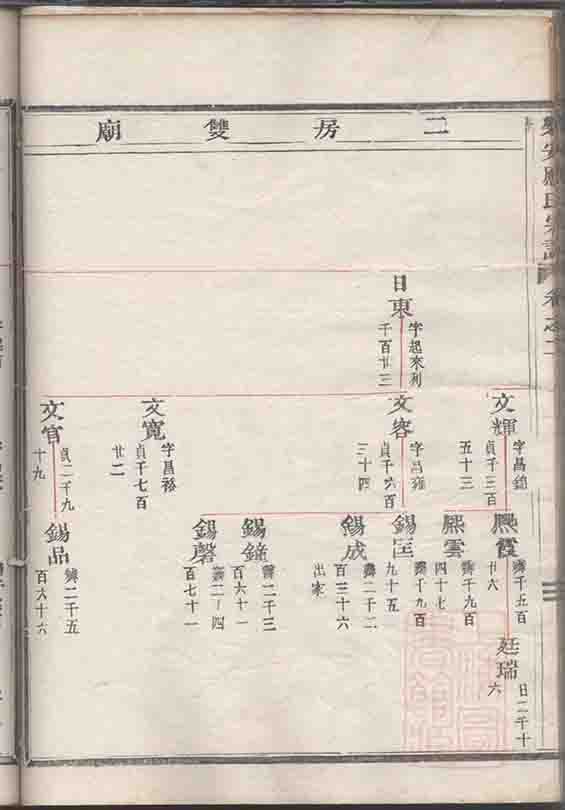 二房雙廟
卷之二
日東
字起來利
千百廿三
文輝
貞千三百
五十三
文容
字昌雍
貞千六百
三十四
文寬
字昌裕
貞千七百
廿二
文官
貞二千九
十九
熙霞
千五百
廿六
熙雲
千九百
四十七
錫匡
千九百
九十五
錫成
二千二
百三十六
出家
錫
二千三
百六十一
錫磬
百七十一
錫品
二千五
百六十六
廷瑞
日二千十
六